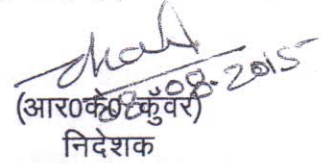 08-08-2015
(आर0के0 कुँवर)
निदेशक